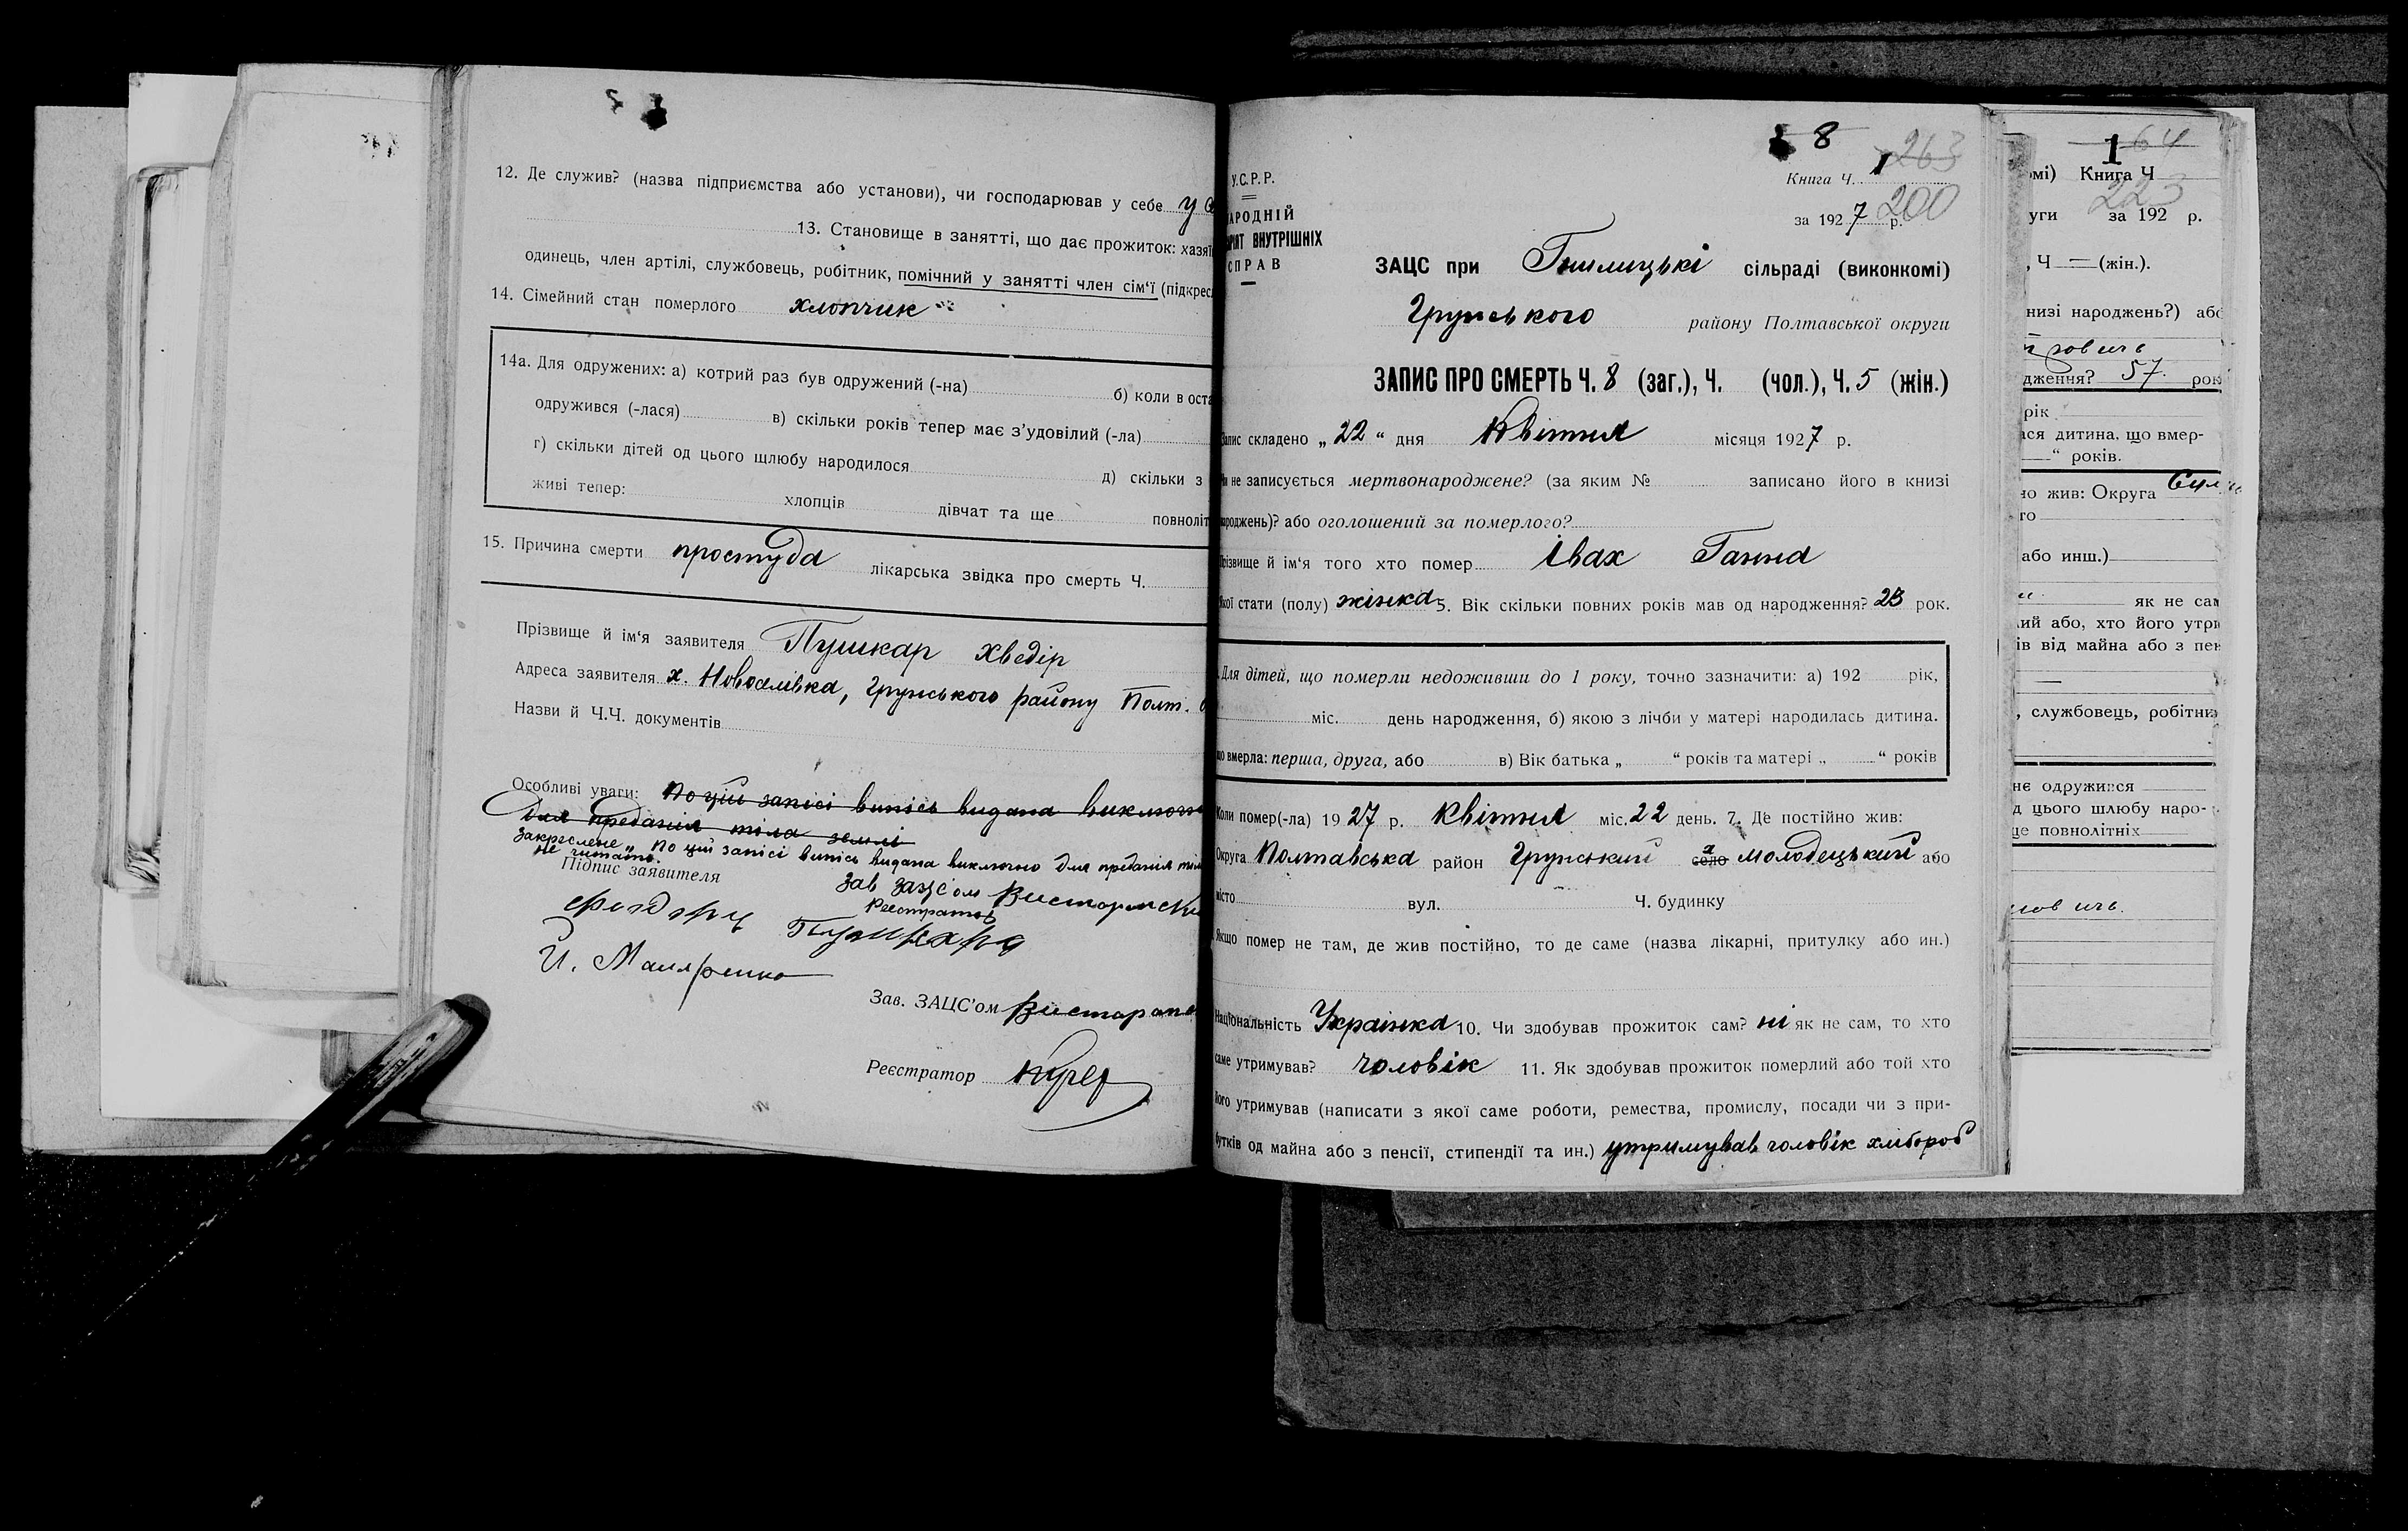 12. Де служив? (назва підприємства або установи), чи господарював у себе у
13. Становище в занятті, що дає прожиток: хазяї
одинець, член артілі, службовець, робітник, помічний у занятті член сім‘ї (підкрес
14. Сімейний стан померлого хлопчик
14а. Для одружених: а) котрий раз був одружений (-на) б) коли в оста
одружився (-лася) в) скільки років тепер має з’удовілий (-ла)
г) скільки дітей од цього шлюбу народилося д) скільки з
живі тепер: хлопців дівчат та ще повноліт
15. Причина смерти простуда лікарська звідка про смерть Ч.
Прізвище й ім‘я заявителя Пушкар Хведір
Адреса заявителя х. Новоселівка, Грунського району Полт.
Назви й Ч.Ч. документів
Особливі уваги: По цій записі випісь видана виключно
для преданія тіла землі
Закреслене „По цій записі випісь видана виключно для преданія тіла
не читати.
Підпис заявителя
Зав зацс'ом
Реєстратор
Пушкара
Й. Маляренко
Зав. ЗАЦС’ом
Реєстратор
8
263
У.С.Р.Р.
Книга Ч. 1
200
за 1927 р.
АРОДНІЙ
АРІЯТ ВНУТРІШНІХ
СПРАВ
ЗАЦС при сільраді (виконкомі)
Грунського району Полтавської округи
ЗАПИС ПРО СМЕРТЬ Ч. 8 (заг.), Ч. (чол.), Ч. 5 (жін.)
Запис складено „22“ дня Квітня місяця 1927 р.
Чи не записується мертвонароджене? (за яким № записано його в книзі
народжень)? або оголошений за померлого?
Прізвище й ім‘я того хто помер Івах Ганна
Якої стати (полу) жінка 5. Вік скільки повних років мав од народження? 23 рок.
Для дітей, що померли недоживши до 1 року, точно зазначити: а) 192 рік,
міс. день народження, б) якою з лічби у матері народилась дитина.
що вмерла: перша, друга, або в) Вік батька „ “ років та матері „ “ років
Коли помер(-ла) 1927 р. Квітня міс. 22 день. 7. Де постійно жив:
Округа Полтавська район Грунський село х Молодецький або
місто вул. Ч. будинку
Якщо помер не там, де жив постійно, то де саме (назва лікарні, притулку або ин.)
Національність Українка 10. Чи здобував прожиток сам? ні як не сам, то хто
саме утримував? чоловік 11. Як здобував прожиток померлий або той хто
його утримував (написати з якої саме роботи, ремества, промислу, посади чи з при-
бутків од майна або з пенсії, стипендії та ин.) утримував чоловік хлібороб
64
1
омі) Книга Ч
223
уги за 192 р.
, Ч — (жін.).
низі народжень?) або
дження? 57 рок
рік
ася дитина, що вмер-
“ років.
но жив: Округа
го
або инш.)
як не сам
ий або, хто його утри
ів від майна або з пен
, службовець, робітни
не одружився
д цього шлюбу наро-
ще повнолітніх